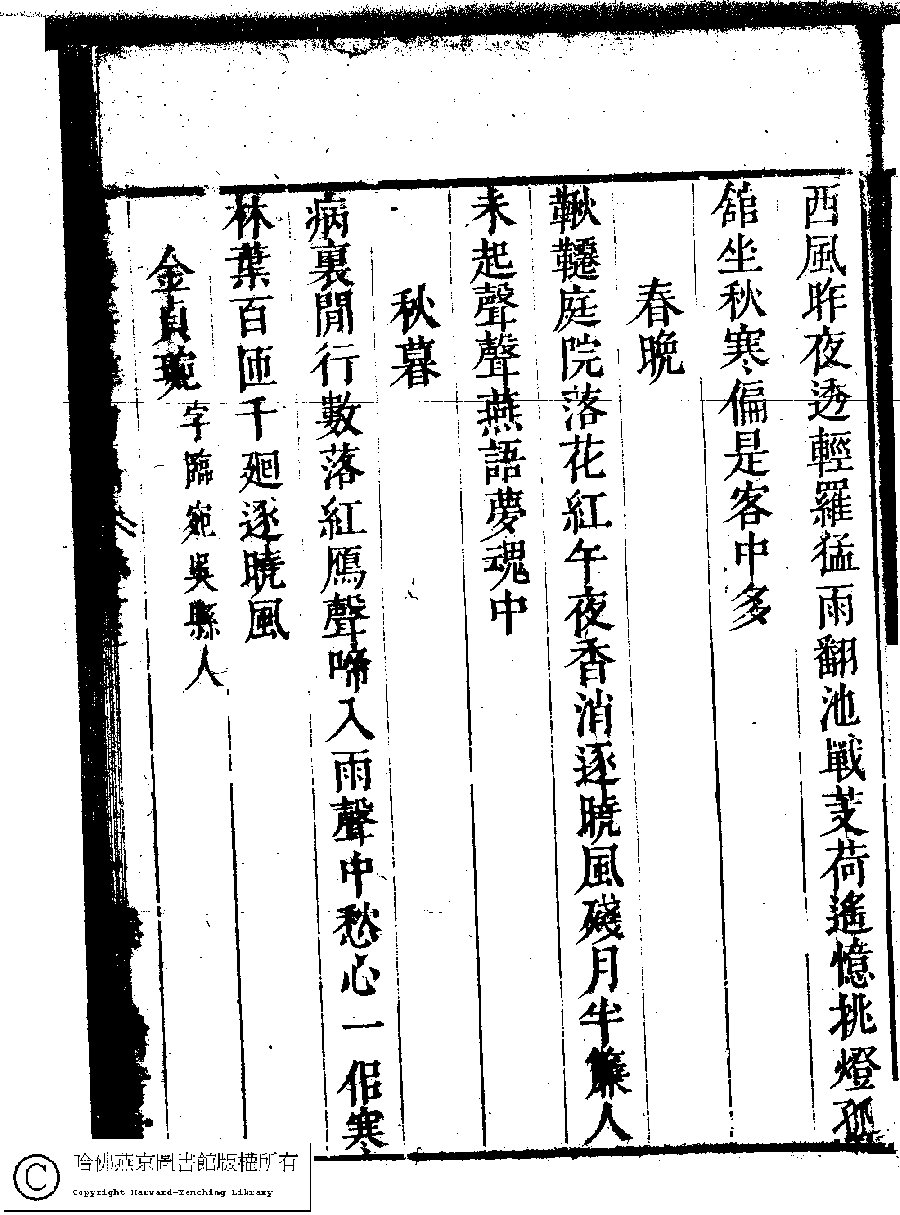 西風昨夜透輕羅猛雨翻池戰芰荷遙憶挑燈孤
舘坐秋寒偏是客中多
春晚
鞦韆庭院落花紅午夜香消逐曉風殘月半簾人
未起聲聲燕語夢魂中
秋暮
病裏閒行數落紅鴈聲啼入雨聲中愁心一似寒
林葉百匝千廻逐曉風
金貞琬字臨宛吳縣人
哈佛燕京圖書館版權所有
Copyright Harvard-Yenching Library